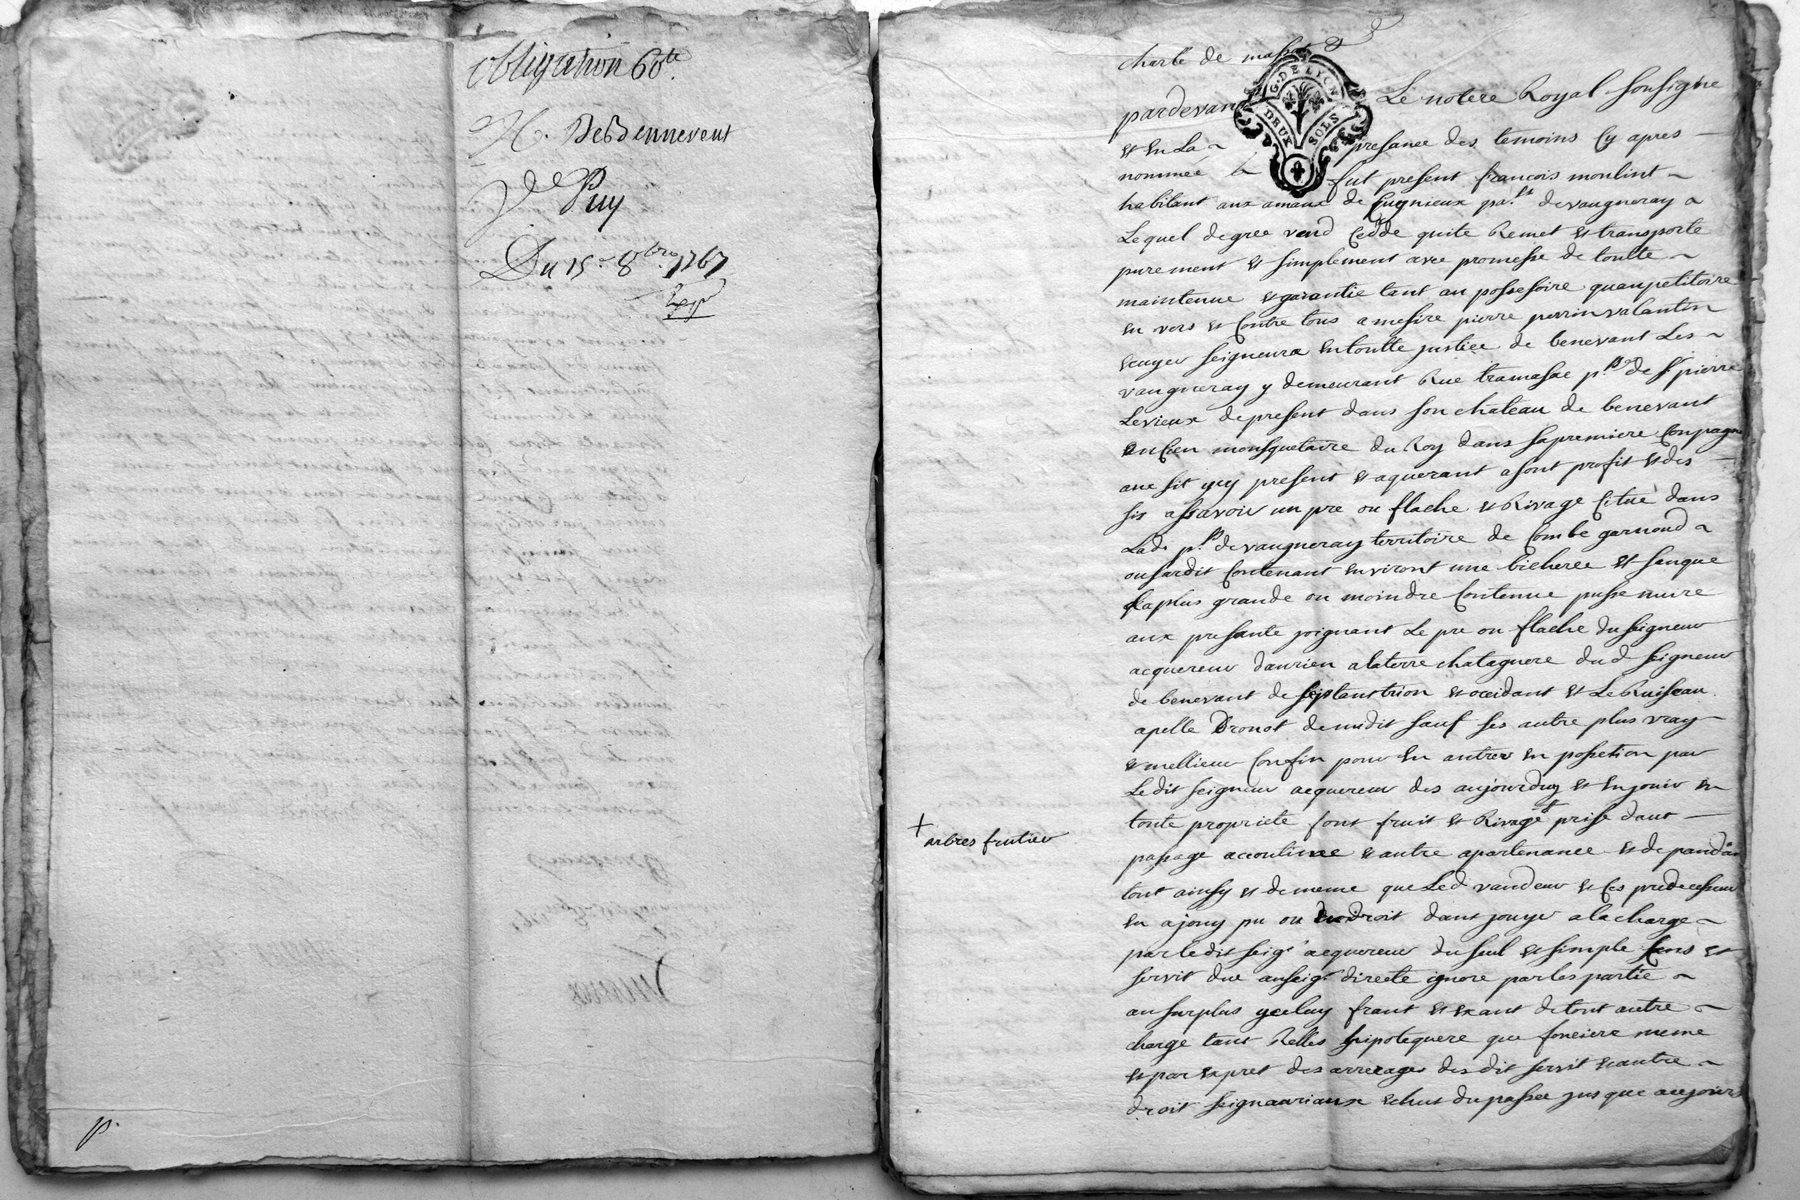 obligation 60 lt.
M. Debennevent
Vve Puy
Du 15e 8bre 1767
Expe
p.
charle de masse
G. DE LYON
DEUX SOLS
pardevant Le notere Royal sousigne
et en La presance des temoins Cy apres
nommée fut present francois moulint
habitant aux amaux de Gugnieux pa.sse devaugneray
Lequel degree vend Cedde quite Remet et transporte
purement et simplement avec promesse de toutte
maintenue et garantie tant au possessoire quaupetitoire
en vers et Contre tous a mesire pierre perrin valantin
ecuyer seigneura entoutte justice de benevant Les
vaugneray y demeurant Rue tramasac p.sse de st pierre
Levieux depresent dans son château de benevant
encien mousquetaire du Roy dans sa premiere Conpagn
ane sit ycy present et aquerant a sont profit et des
sis assavoir un pre ou flache et Rivage Citué dans
Lad. p.sse devaugneray territoire de Combe garnond
ousardit Contenant environt une bicheree et sanque
La plus grande ou moindre Contenue puisse nuire
aux presante joignant Le pre ou flache du seigneur
acquereur daurien a la terre chatagnere dud seigneur
de benevant de septantrion et occidant et Le Ruiseau
apelle Dronot demidit sauf ses autre plus vray
et mellieur Confin pour en antrer en possetion par
Ledit seigneur acquereur des aujourdhuy et en jouir en
toute propriete font fruit et Rivage + prise d'aut
+ arbres frutier
pasage accoutumee et autre apartenance et depandan
tout ainsy et de meme que Led vandeur et Ces predecesseur
en a jouy pu ou du droit dant jouyr a la charge
par ledit seig.r acquereur du seul et simple Cens et
servit due au seig.r directe ignore par les partie
au surplus yceluy franc et exant de tout autre
charge tant Relles hipotequere que fonciere meme
et par expret des arrerages des dit servit et autre
droit seignauriaux echut du passee jus que aujour